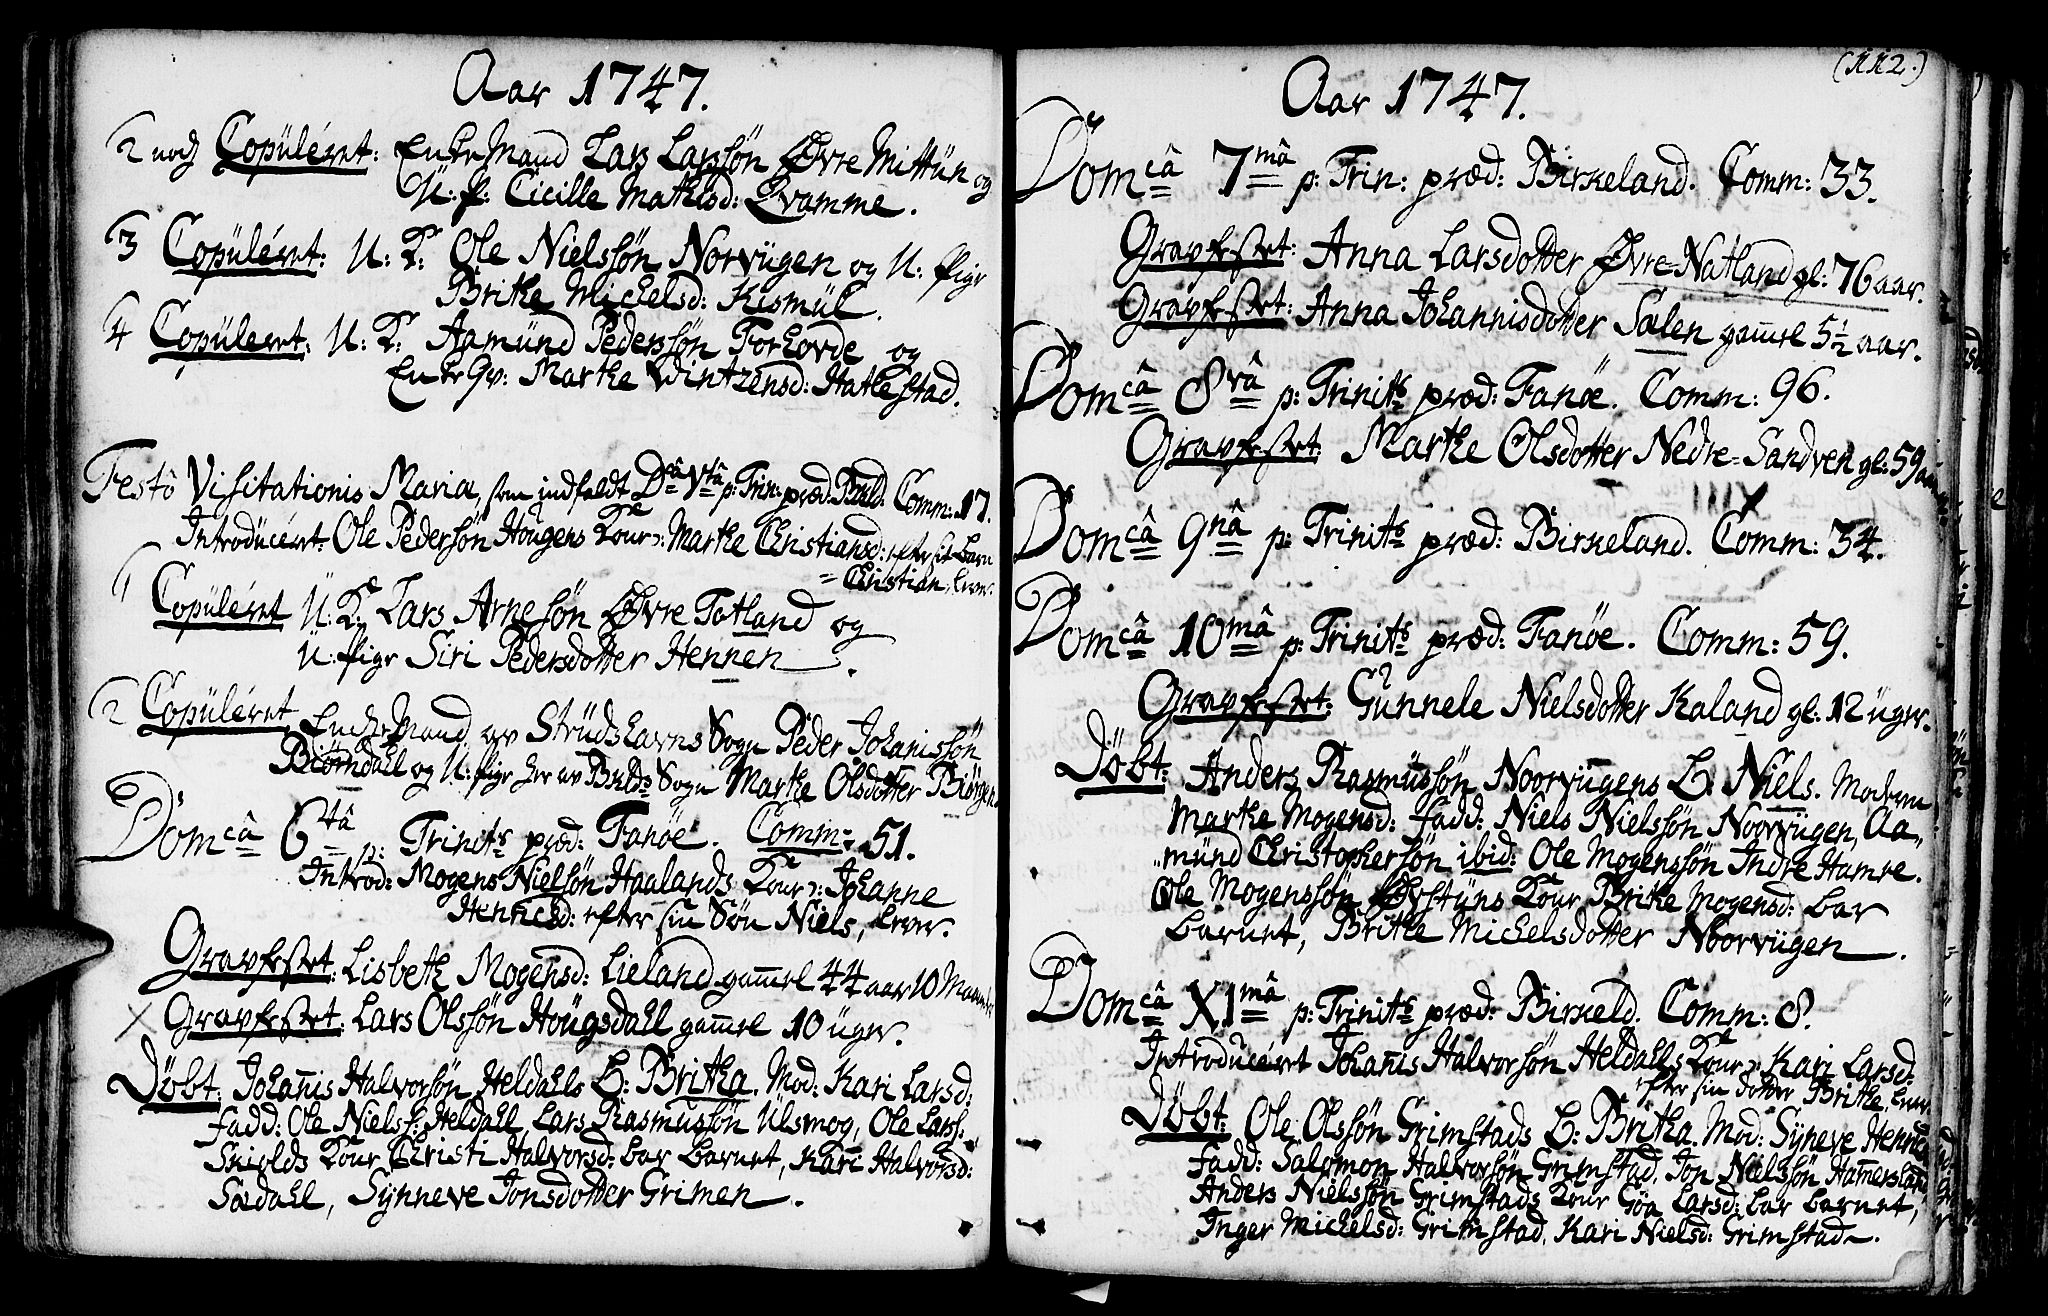 Aar 1747.
2 nod Copüléret: Enke Mand Lars Larssön Øvre Mittün og
U: p: Cicille Mathisd: Qvamme.
3 Copüléret: U: K: Ole Nielssön Norvügen og U: Pige
Brithe Michelsd: Kismül.
4 Copüleret: U: K: Aamünd Pederssön Forhovde og
Enke Qv: Marthe Wintzensd: Hatlestad.
Festô Visitationis Mariæ, som indfaldt Dcâ Vtâ p: Trin: præd: Bkld. Comm: 17.
Introdüceret: Ole Pedersön Hougens Kone: Marthe Christiansd: efter sit Barn
Christian,
1 Copüléret U: K: Lars Arnesön Øvre Totland og
U: Pige Siri Pedersdotter Hennen.
2 Copüléret Enke Mand av Strüdshavns Sogn Peder Johanissön
Biörndahl og U: Pige her av Bkld: Sogn Marthe Olsdotter Biörgen
Domcâ 6tâ p: Trinit: præd: Fanöe. Comm: 51.
Introd: Mogens Nielsön Haalands Kone: Johanne
Henricsd: efter sin Sön Niels,
Gravfestet: Lisbeth Mogensd: Lieland gam̄el 44 aar 10 Maaneder
Gravfestet: Lars Olssön Hougsdall gam̄el 10 üger.
Döbt: Johan̄is Halvorsön Heldahls B: Britha. Mod: Kari Larsd:
Fadd: Ole Niels: Heldall, Lars Rasmussön Ülsmog, Ole Lars:
Skiolds Kone Christi Halvorsd: bar Barnet, Kari Halvorsd:
Sædahll, Synneve Jonsdotter Grimen.
(112.)
Aar 1747.
Domcâ 7mâ p: Trin: præd: Birkeland. Comm: 33.
Gravfestet: Anna Larsdotter Øvre-Natland gl: 76 aar.
Gravfestet: Anna Johannisdotter Sælen gam̄el 5½ aar.
Domcâ 8vâ p: Trinit: præd: Fanöe. Comm: 96.
Gravfestet: Marthe Olsdotter Nedre-Sandven gl: 59 aar
Domcâ 9nâ p: Trinit: præd: Birkeland. Comm: 34.
Domcâ 10mâ p: Trinit: præd: Fanöe. Comm: 59.
Gravfestet: Gunnele Nielsdotter Kaland gl: 12 üger.
Döbt: Anders Rasmüssön Noorvügens B: Niels. Modren
Marthe Mogensd: Fadd: Niels Nielssön Noorvügen, Aa„
„münd Christophersön ibid: Ole Mogenssön Indre Hamre.
Ole Mogenssön Øvstüns Kone Brithe Mogensd: bar
Barnet, Brithe Michelsdotter Noorvügen.
Domcâ XImâ p: Trinit: præd: Birkeld. Comm: 8.
Introducéret Johan̄is Halvorsön Heldahls Kone: Kari Larsd:
efter sin Dotter Brithe,
Döbt: Ole Olssön Grimstads B: Britha. Mod: Synneve Henrics
Fadd: Salomon Halvorsön Grimstad, Jon Nielssön Hamersland
Anders Nielssön Grimstads Kone Göa Larsd: bar Barnet,
Inger Michelsd: Grimstad, Kari Nielsd: Grimstad.